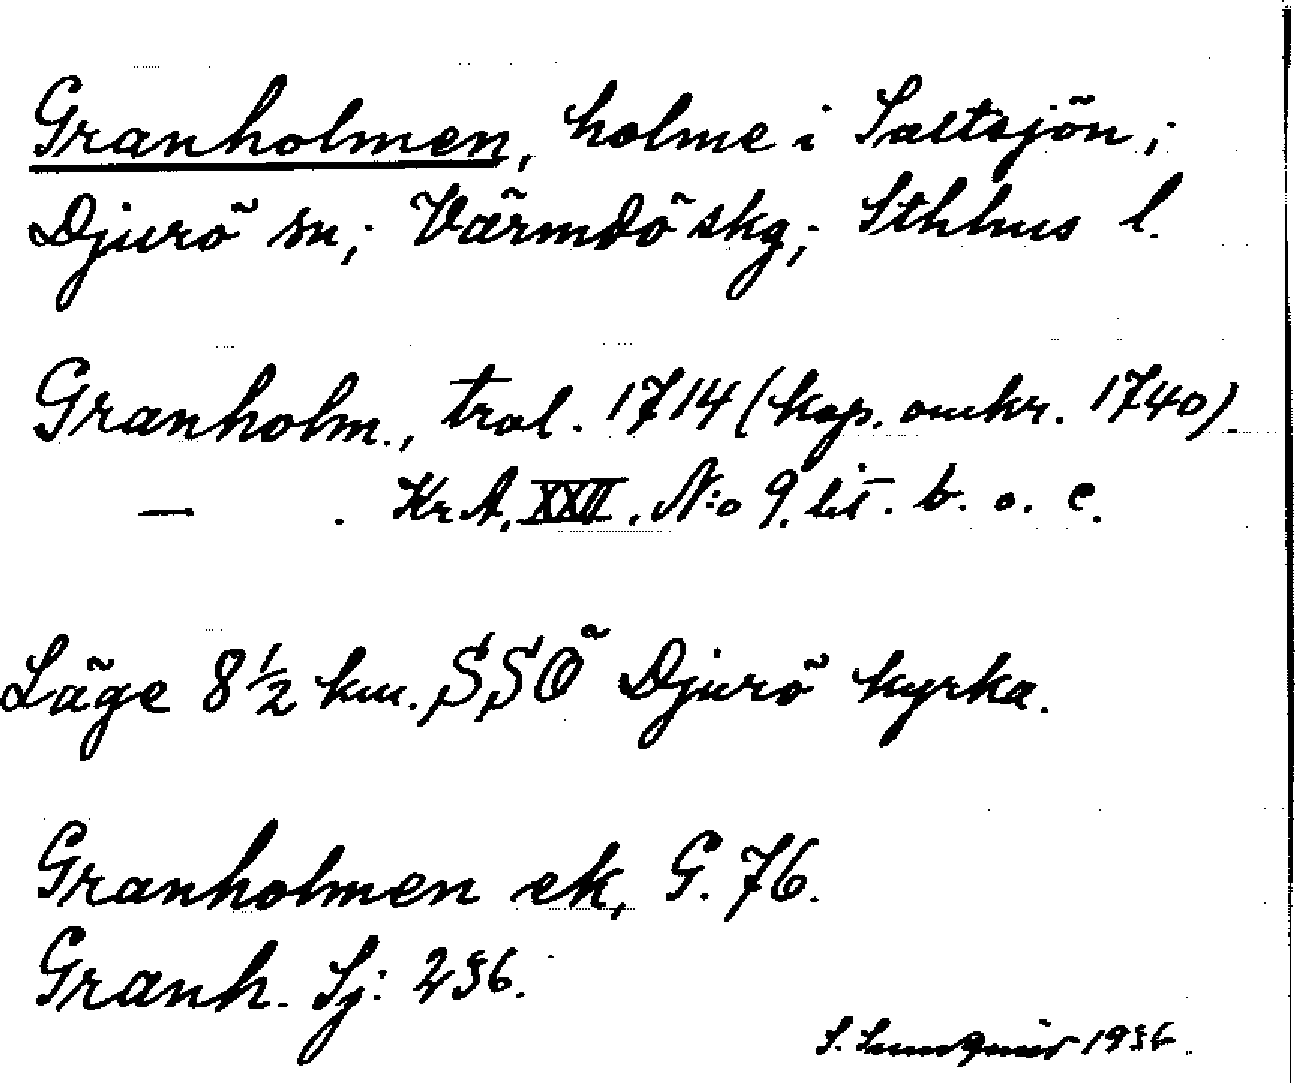 Granholmen, holme i Saltsjön;
Djurö sn; Värmdö skg; Sthlms l.
Granholm., trol. 1714 (kop. omkr. 1740).
— . KrA. XXII. N:o 9. lit. b. o. c.
Läge 8 1/2 km. SSÖ Djurö kyrka.
Granholmen ek, G. 76.
Granh. Sj: 236.
S. 1936.